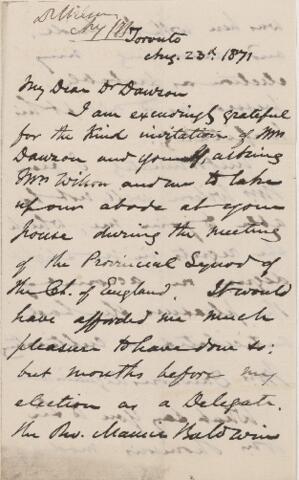 Dr Wilson
Aug /71
Toronto
Aug. 23rd 1871
My Dear Dr Dawson
I am exceedingly grateful
for the kind invitation of Mrs
Dawson and yourself, asking
Mrs Wilson and me to take
up our abode at your
house during the meeting
of the Provincial Synod of
the Ch. of England. It would
have afforded me much
pleasure to have done so:
but months before my
election as a Delegate.
the Rev. Maurice Baldwin